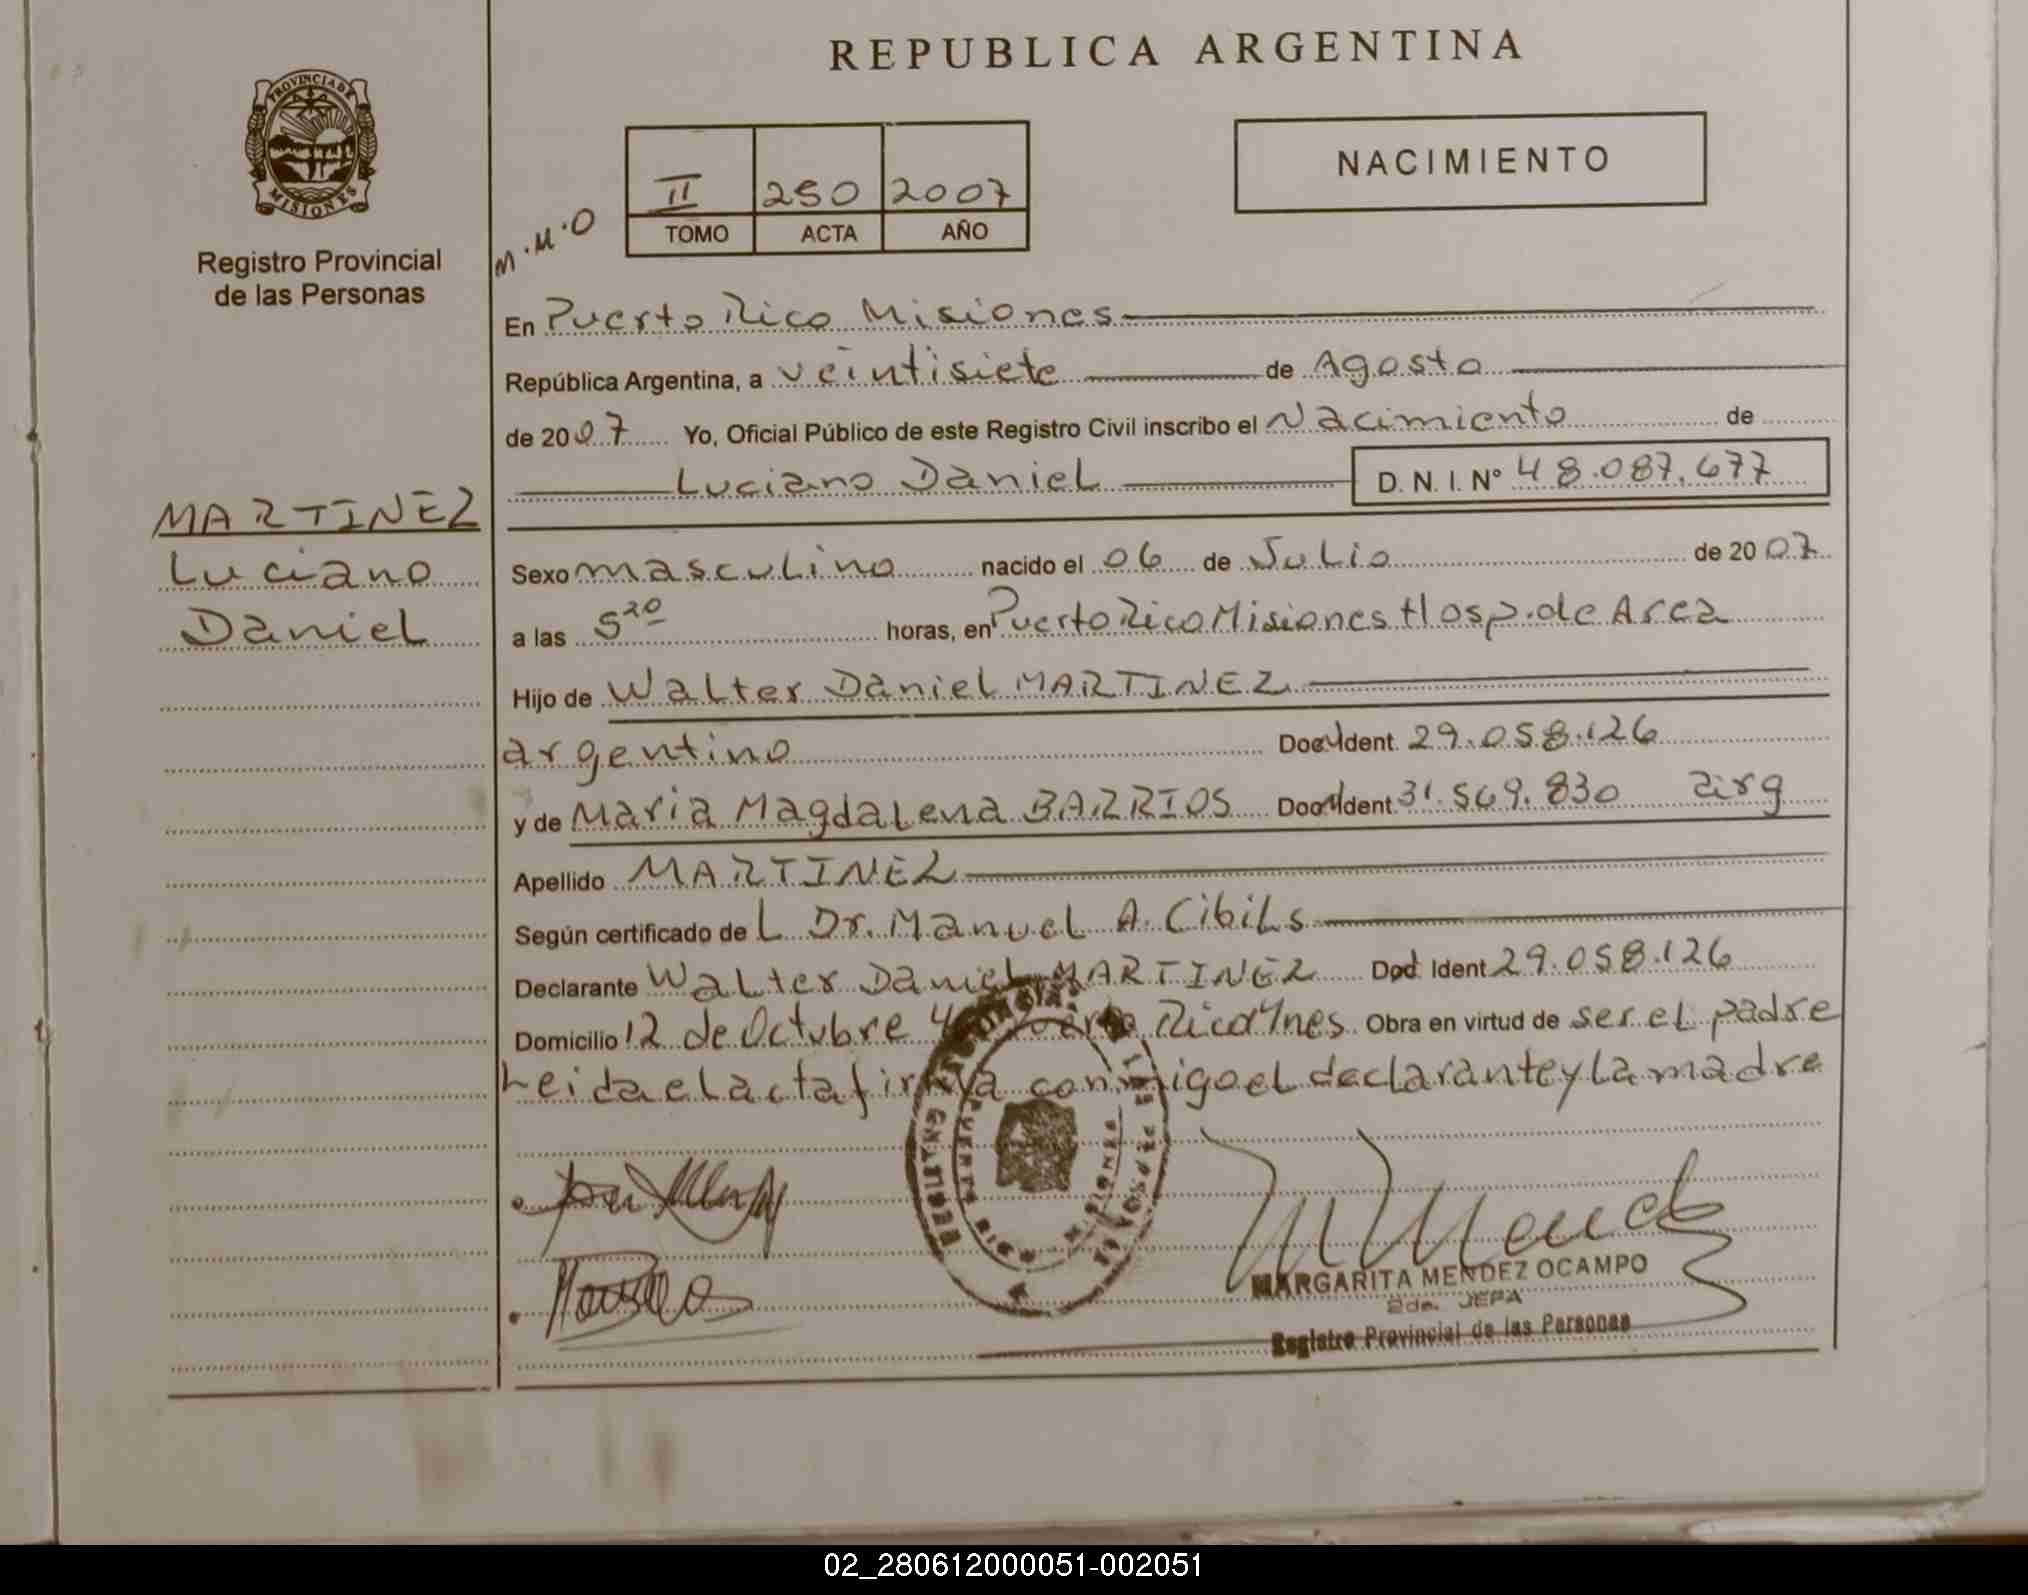 REPUBLICA ARGENTINA
PROVINCIA DE
MISIONES
Registro Provincial
de las Personas
II 250 2007
TOMO ACTA AÑO
NACIMIENTO
M.M.O
En Puerto Rico Misiones
República Argentina, a veintisiete de Agosto
de 2007 Yo, Oficial Público de este Registro Civil inscribo el Nacimiento de
Luciano Daniel D. N. I. Nº 48.087.677
MARTINEZ
Luciano
Daniel
Sexo masculino nacido el 06 de Julio de 2007
a las 5 20 horas, en Puerto Rico Misiones Hosp. de Area
Hijo de Walter Daniel MARTINEZ
argentino Doc. Ident. 29.058.126
y de Maria Magdalena BARRIOS Doc. Ident. 31.569.830 arg
Apellido MARTINEZ
Según certificado de L Dr. Manuel A. Cibils
Declarante Walter Daniel MARTINEZ Doc. Ident 29.058.126
Domicilio 12 de Octubre Puerto Rico Mnes. Obra en virtud de ser el padre
Leida el acta firma conmigo el declarante y la madre
PUERTO RICO MISIONES
MARGARITA MENDEZ OCAMPO
2da. JEFA
Registro Provincial de las Personas
02_280612000051-002051